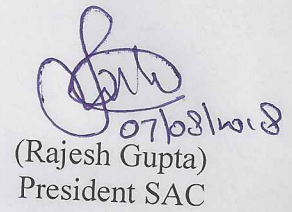 07/08/2018
(Rajesh Gupta)
President SAC